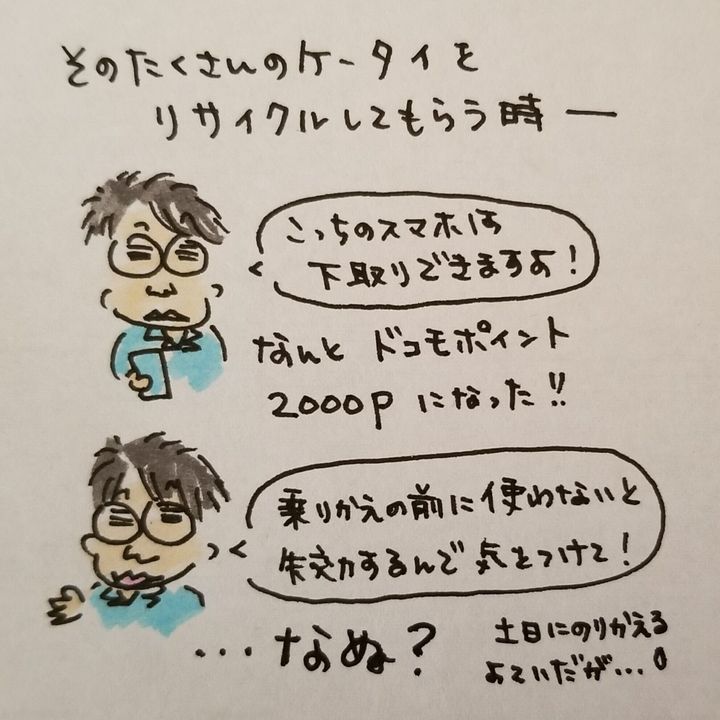 そのたくさんのケータイを
リサイクルしてもらう時ー
こっちのスマホは
下取りできますよ!
なんと ドコモポイント
2000P になった!!
乗りかえの前に使わないと
失効するんで気をつけて!
...なぬ?
土日にのりかえる
よていだが...!